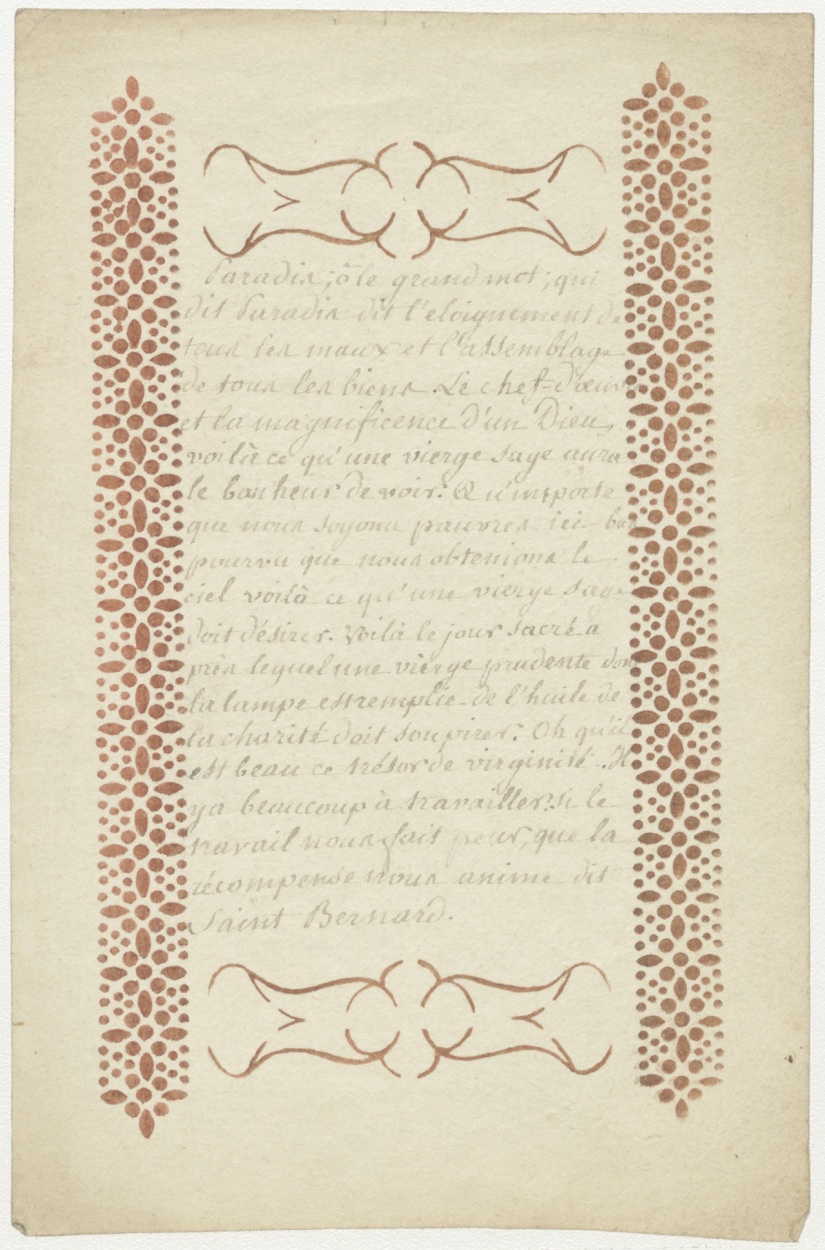 Paradis; ô le grand mot; qui
dit Paradis dit l'eloignement de
tous les maux et l'assemblage
de tous les biens. Le chef-d'œuvre
et la magnificence d'un Dieu,
voilà ce qu'une vierge sage aura
le bonheur de voir. Qu'importe
que nous soyons pauvres ici-bas
pourvu que nous obtenions le
ciel voilà ce qu'une vierge sage
doit désirer. Voilà le jour sacré a
près lequel une vièrge prudente dont
la lampe est remplie de l'huile de
la charité doit soupirer. Oh qu'il
est beau ce trésor de virginité. Il
y a beaucoup à travailler: si le
travail nous fait peur, que la
récompense nous anime dit
Saint Bernard.